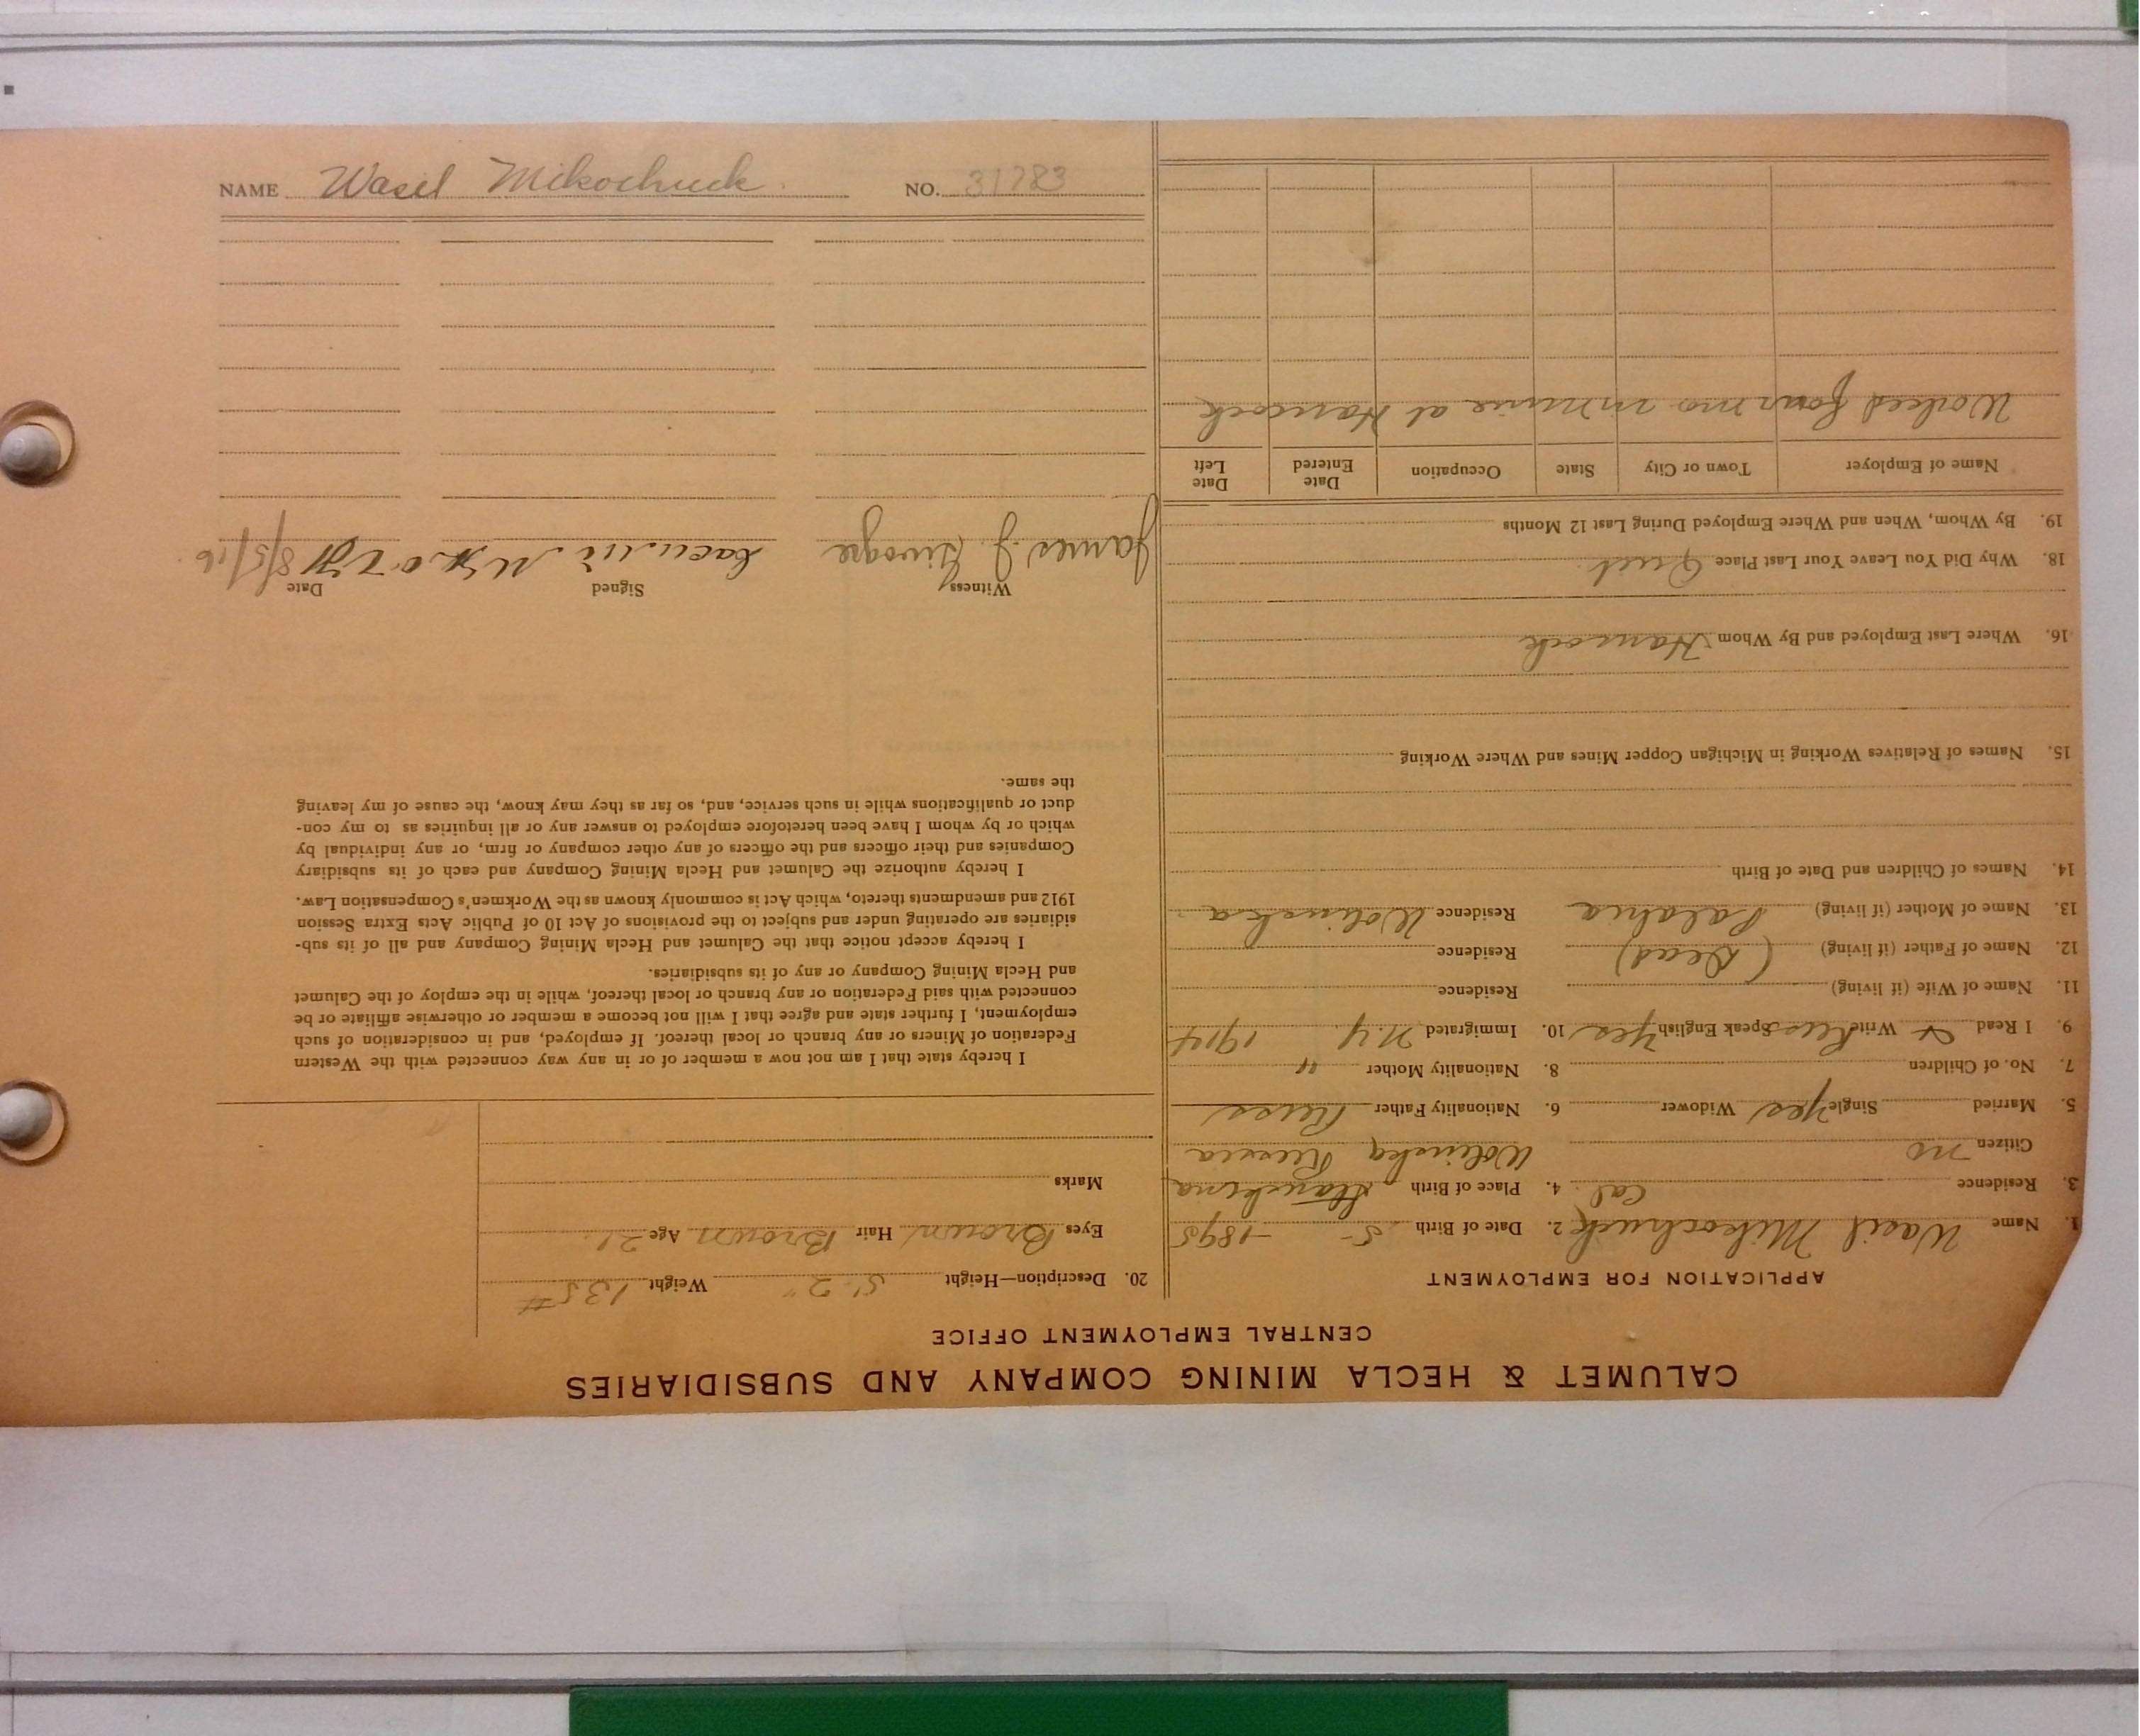 NAME Wasil Mikochuck NO. 31783
CALUMET & HECLA MINING COMPANY AND SUBSIDIARIES
CENTRAL EMPLOYMENT OFFICE
APPLICATION FOR EMPLOYMENT
1. Name Wasil Mikochuck 2. Date of Birth 5 - 1895
3. Residence Cal. 4. Place of Birth
Citizen no Wolinska Russia
5. Married Single Yes Widower 6. Nationality Father Russ
7. No. of Children 8. Nationality Mother "
9. I Read & Write Russ Speak English Yes 10. Immigrated N.Y. 1914
11. Name of Wife (if living) Residence
12. Name of Father (if living) (Dead) Residence
13. Name of Mother (if living) Palahia Residence Wolinska
14. Names of Children and Date of Birth
15. Names of Relatives Working in Michigan Copper Mines and Where Working
16. Where Last Employed and By Whom Hancock
18. Why Did You Leave Your Last Place Quit
19. By Whom, When and Where Employed During Last 12 Months
Name of Employer Town or City State Occupation Date Entered Date Left
Worked four mo in mine at Hancock
20. Description—Height 5' 2" Weight 135 #
Eyes Brown Hair Brown Age 21
Marks
I hereby state that I am not now a member of or in any way connected with the Western
Federation of Miners or any branch or local thereof. If employed, and in consideration of such
employment, I further state and agree that I will not become a member or otherwise affiliate or be
connected with said Federation or any branch or local thereof, while in the employ of the Calumet
and Hecla Mining Company or any of its subsidiaries.
I hereby accept notice that the Calumet and Hecla Mining Company and all of its sub-
sidiaries are operating under and subject to the provisions of Act 10 of Public Acts Extra Session
1912 and amendments thereto, which Act is commonly known as the Workmen's Compensation Law.
I hereby authorize the Calumet and Hecla Mining Company and each of its subsidiary
Companies and their officers and the officers of any other company or firm, or any individual by
which or by whom I have been heretofore employed to answer any or all inquiries as to my con-
duct or qualifications while in such service, and, so far as they may know, the cause of my leaving
the same.
Witness Signed Date
James J. 8/5/16